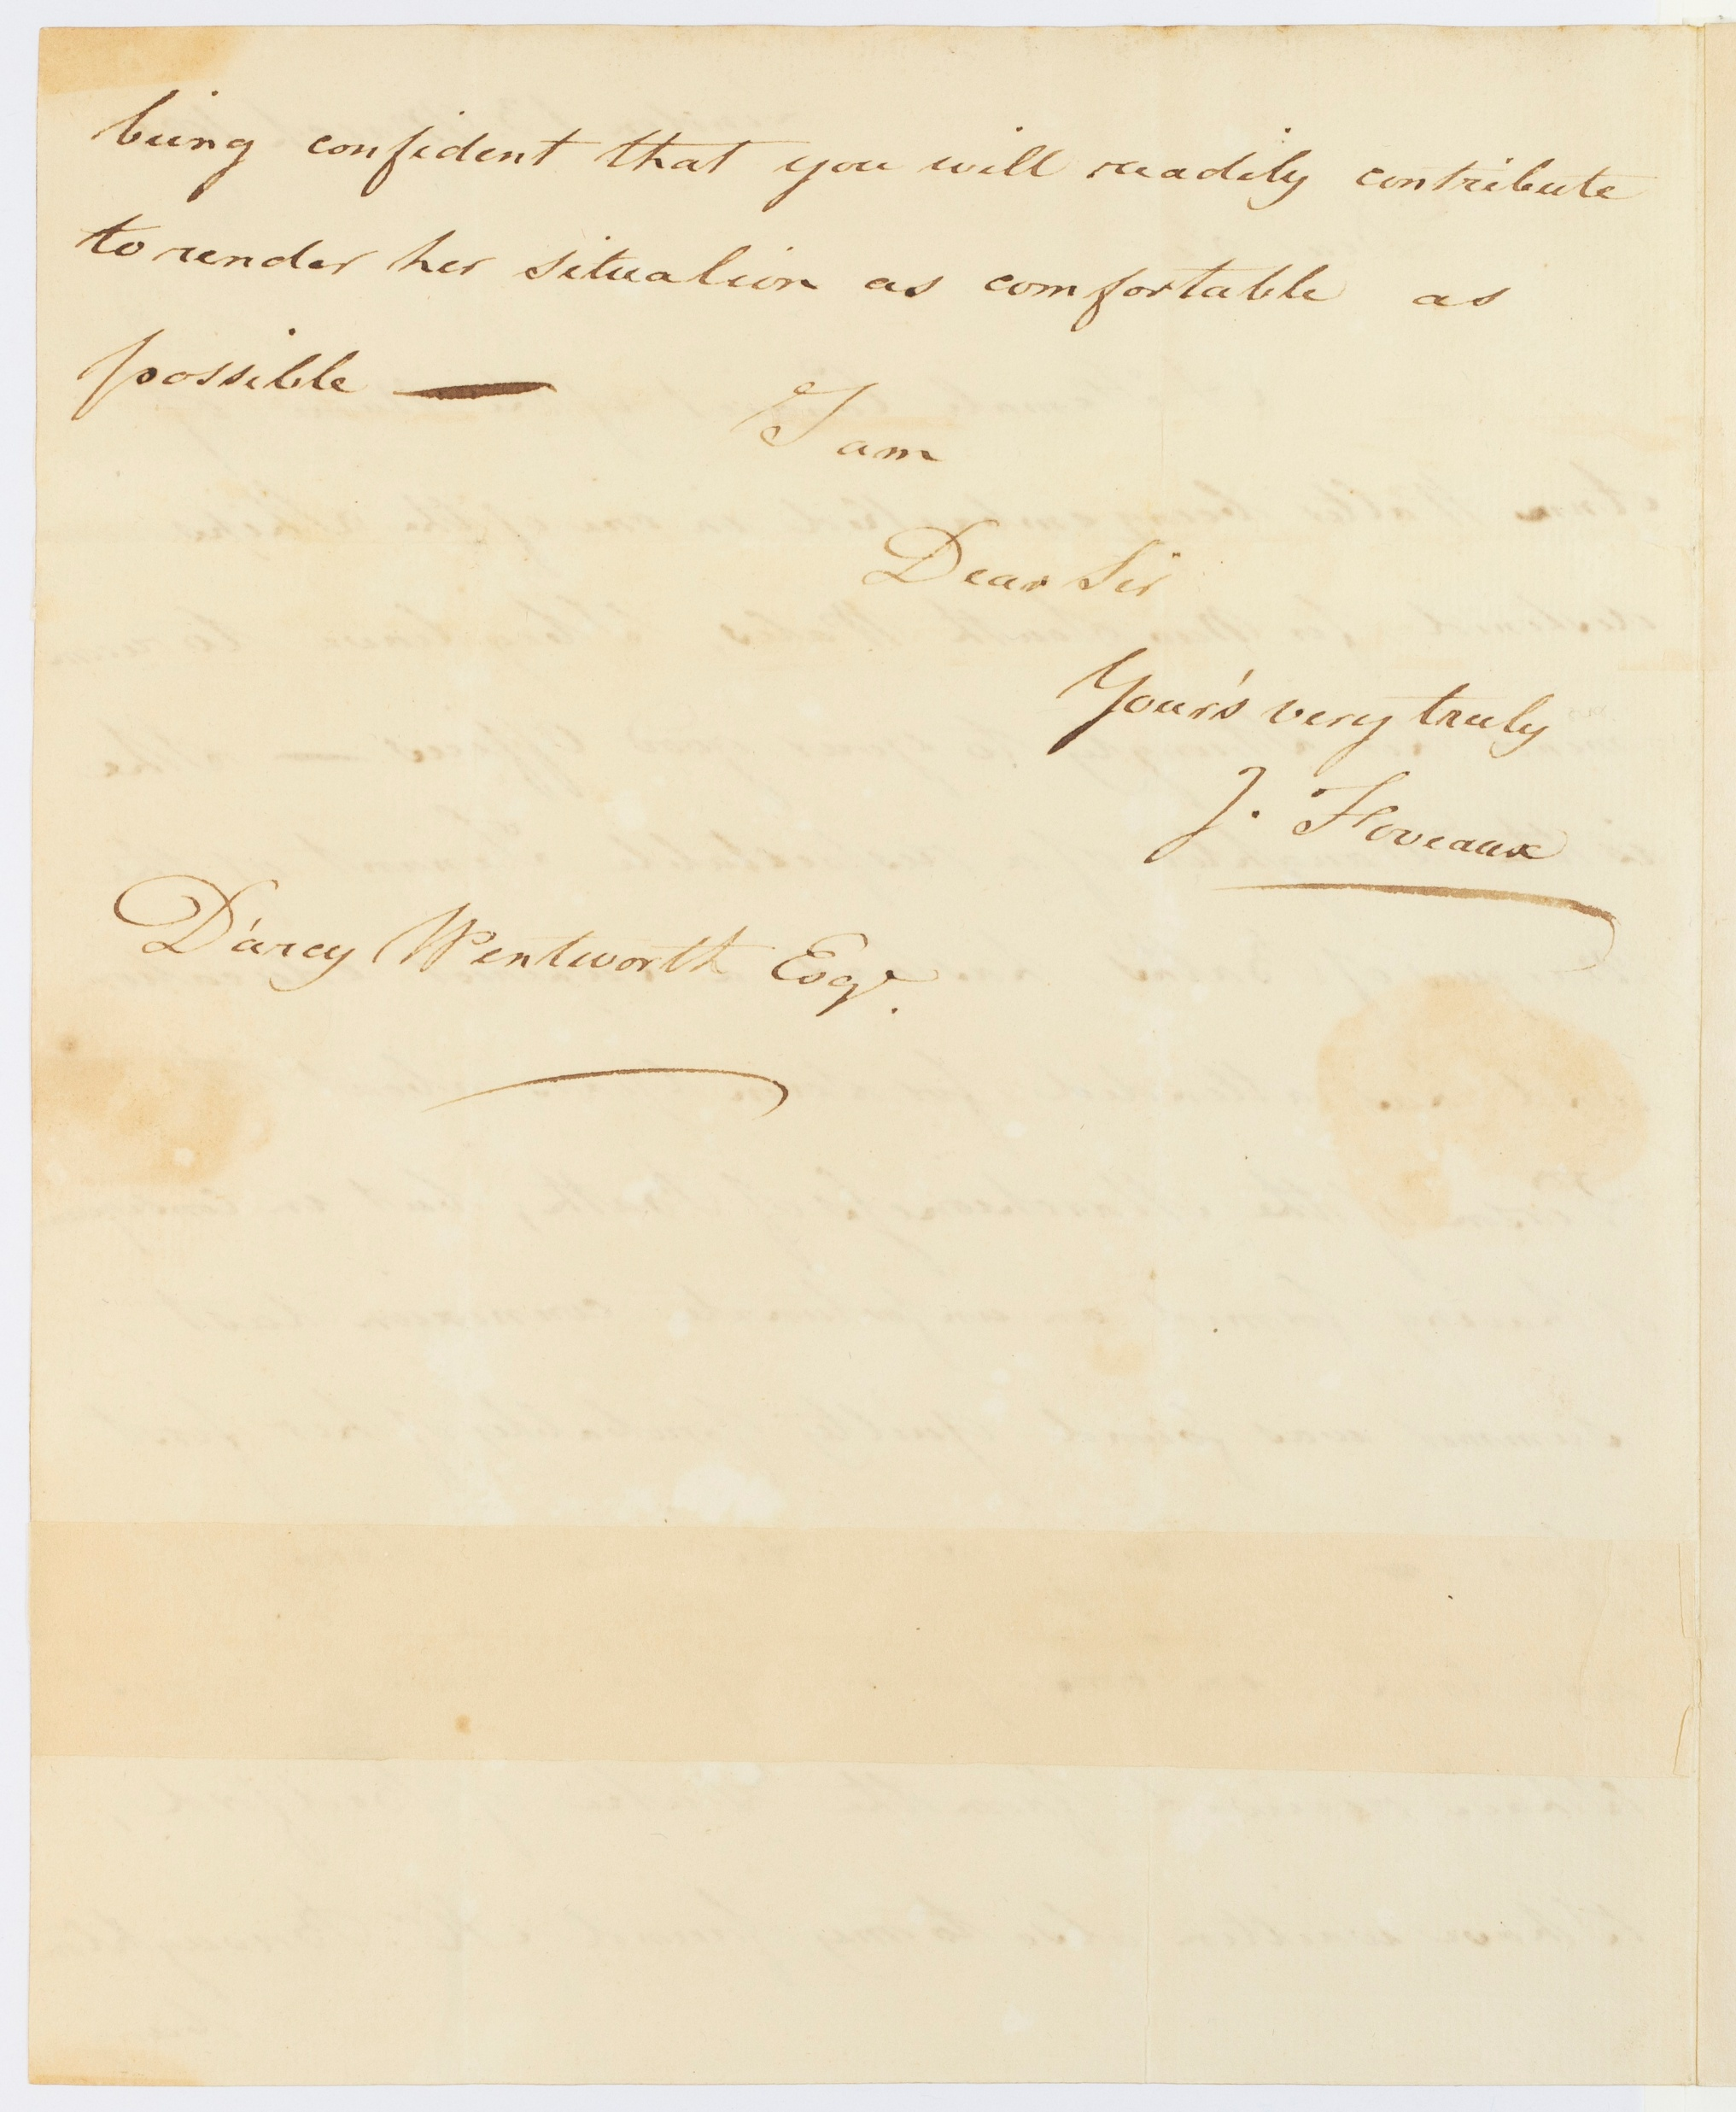 being confident that you will readily contribute
to render her situation as comfortable as
possible —
I am
Dear Sir
Your's very truly
J. Foveaux
D'arcy Wentworth Esqr.